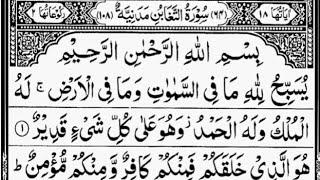 اٰيَاتُهَا ١٨ (٦٤) سُوْرَةُ التَّغَابُنِ مَدَنِيَّةٌ (١٠٨) رُكُوْعَاتُهَا ٢
بِسْمِ اللّٰهِ الرَّحْمٰنِ الرَّحِيْمِ
يُسَبِّحُ لِلّٰهِ مَا فِى السَّمٰوٰتِ وَمَا فِى الْاَرْضِ ۚ لَهُ
الْمُلْكُ وَلَهُ الْحَمْدُ ؗ وَهُوَ عَلٰى كُلِّ شَىْءٍ قَدِيْرٌ ۝١
هُوَ الَّذِىْ خَلَقَكُمْ فَمِنْكُمْ كَافِرٌ وَّمِنْكُمْ مُّؤْمِنٌ ؕ